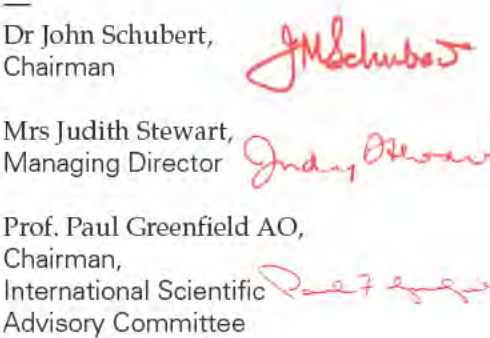 Dr John Schubert,
Chairman
JMSchubert
Mrs Judith Stewart,
Managing Director
Judy Stewart
Prof. Paul Greenfield AO,
Chairman,
International Scientific
Advisory Committee